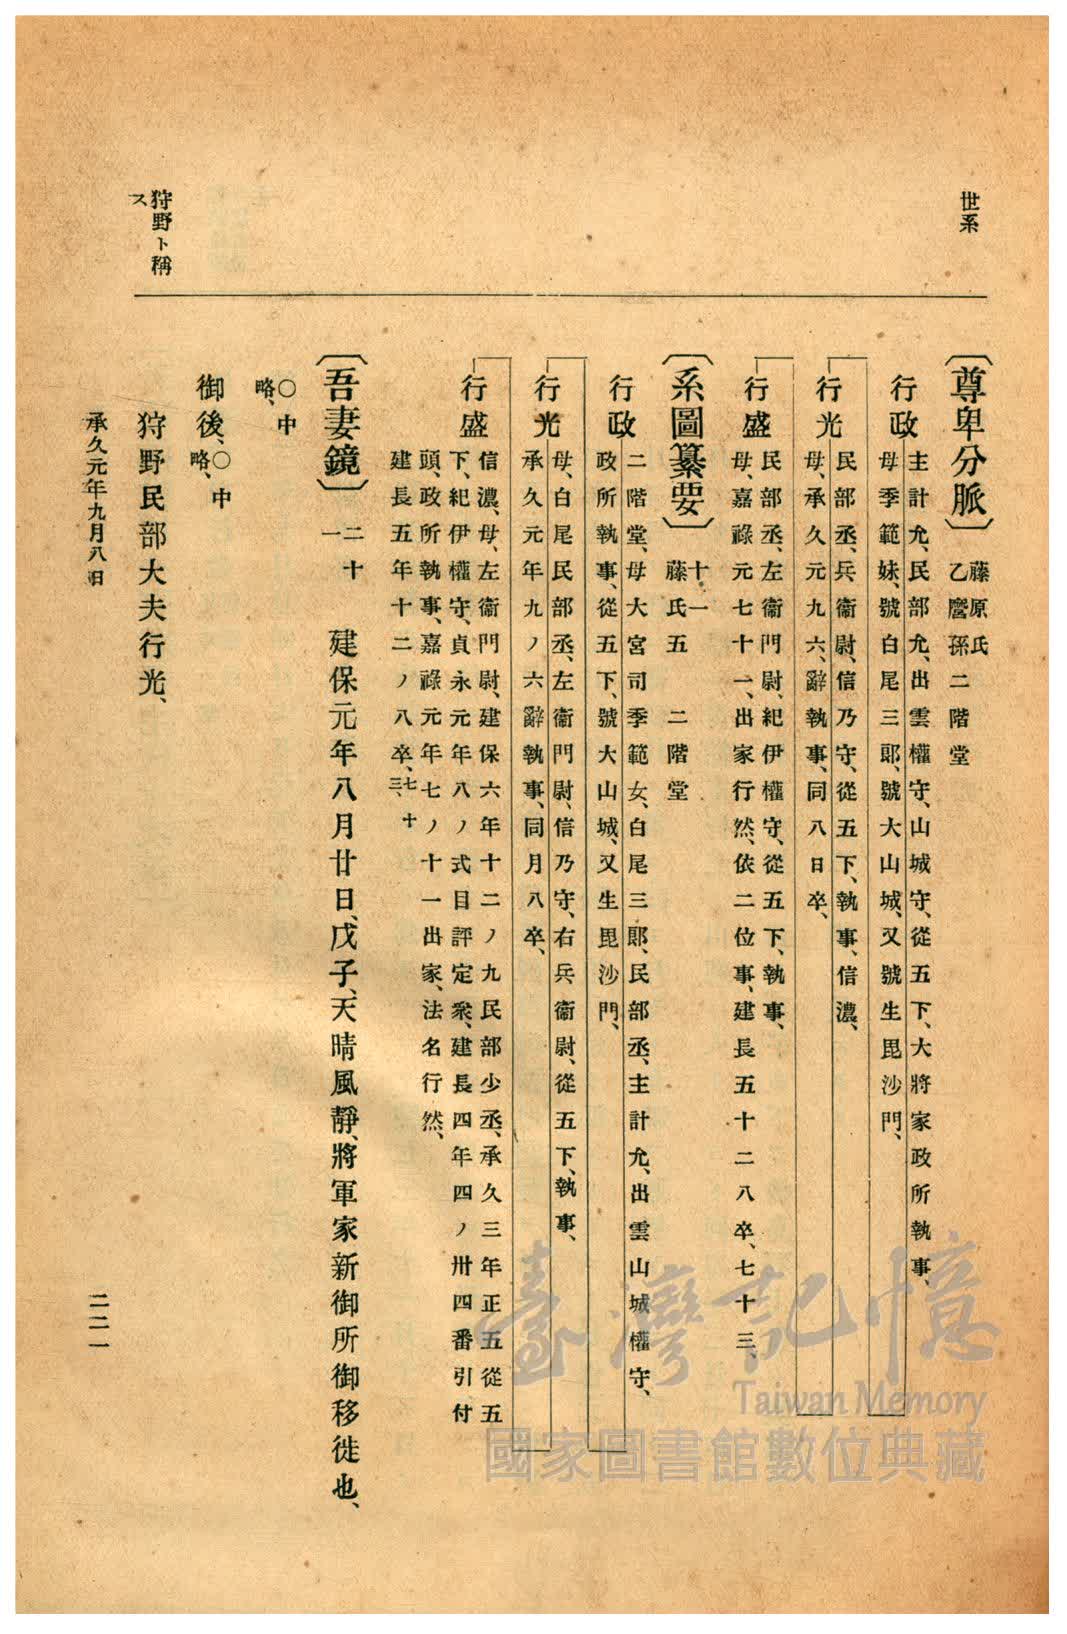 世系
〔尊卑分脈〕藤原氏
乙麿孫二階堂
行政
主計允、民部允、出雲權守、山城守、從五下、大將家政所執事、
母季範妹、號白尾三郎、號大山城、又號生毘沙門、
行光
民部丞、兵衞尉、信乃守、從五下、執事、信濃、
母、承久元九六、辭執事、同八日卒、
行盛
民部丞、左衞門尉、紀伊權守、從五下、執事、
母、嘉祿元七十一、出家行然、依二位事、建長五十二八卒、七十三、
〔系圖纂要〕十一
藤氏五 二階堂
行政
二階堂、母大宮司季範女、白尾三郎、民部丞、主計允、出雲山城權守、
政所執事、從五下、號大山城、又生毘沙門、
行光
母、白尾民部丞、左衞門尉、信乃守、右兵衞尉、從五下、執事、
承久元年九ノ六辭執事、同月八卒、
行盛
信濃、母、左衞門尉、建保六年十二ノ九民部少丞、承久三年正五從五
下、紀伊權守、貞永元年八ノ式目評定衆、建長四年四ノ卅四番引付
頭、政所執事、嘉祿元年七ノ十一出家、法名行然、
建長五年十二ノ八卒、七十
三、
〔吾妻鏡〕二十
一
建保元年八月廿日、戊子、天晴風靜、將軍家新御所御移徙也、
〇中
略、
御後、〇中
略、
狩野ト稱
ス
狩野民部大夫行光、
承久元年九月八日
二二一
臺灣記憶
Taiwan Memory
國家圖書館數位典藏